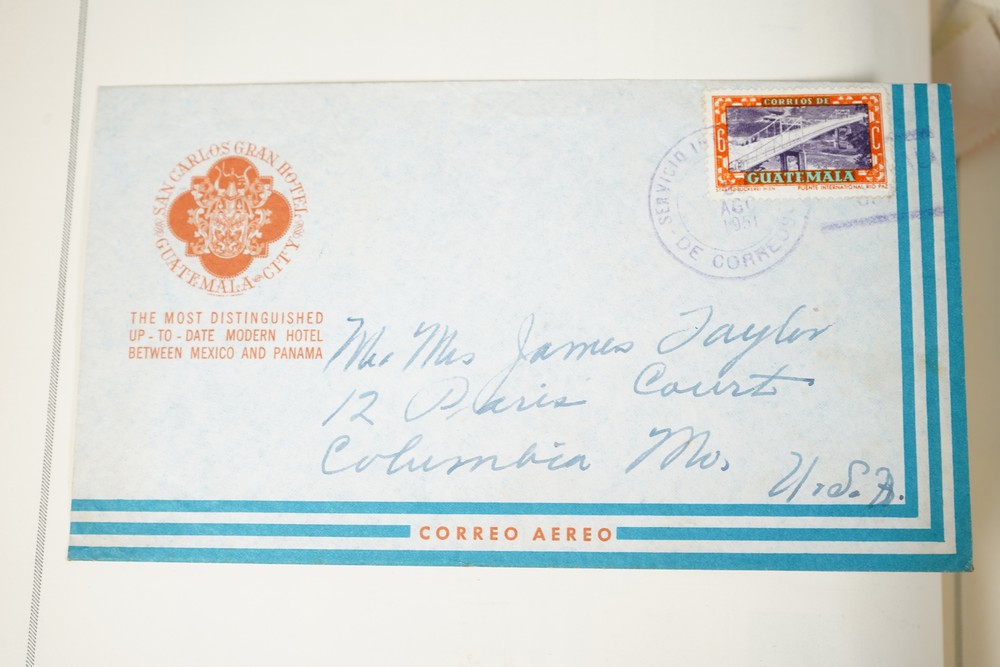 SAN CARLOS GRAN HOTEL
GUATEMALA CITY
THE MOST DISTINGUISHED
UP-TO-DATE MODERN HOTEL
BETWEEN MEXICO AND PANAMA
CORREOS DE
6 C
GUATEMALA
PUENTE INTERNATIONAL RIO PAZ
SERVICIO IN
AGO
1951
DE CORREOS
Mr. Mrs James Taylor
12 Paris Court
Columbia Mo.
U.S.A.
CORREO AEREO